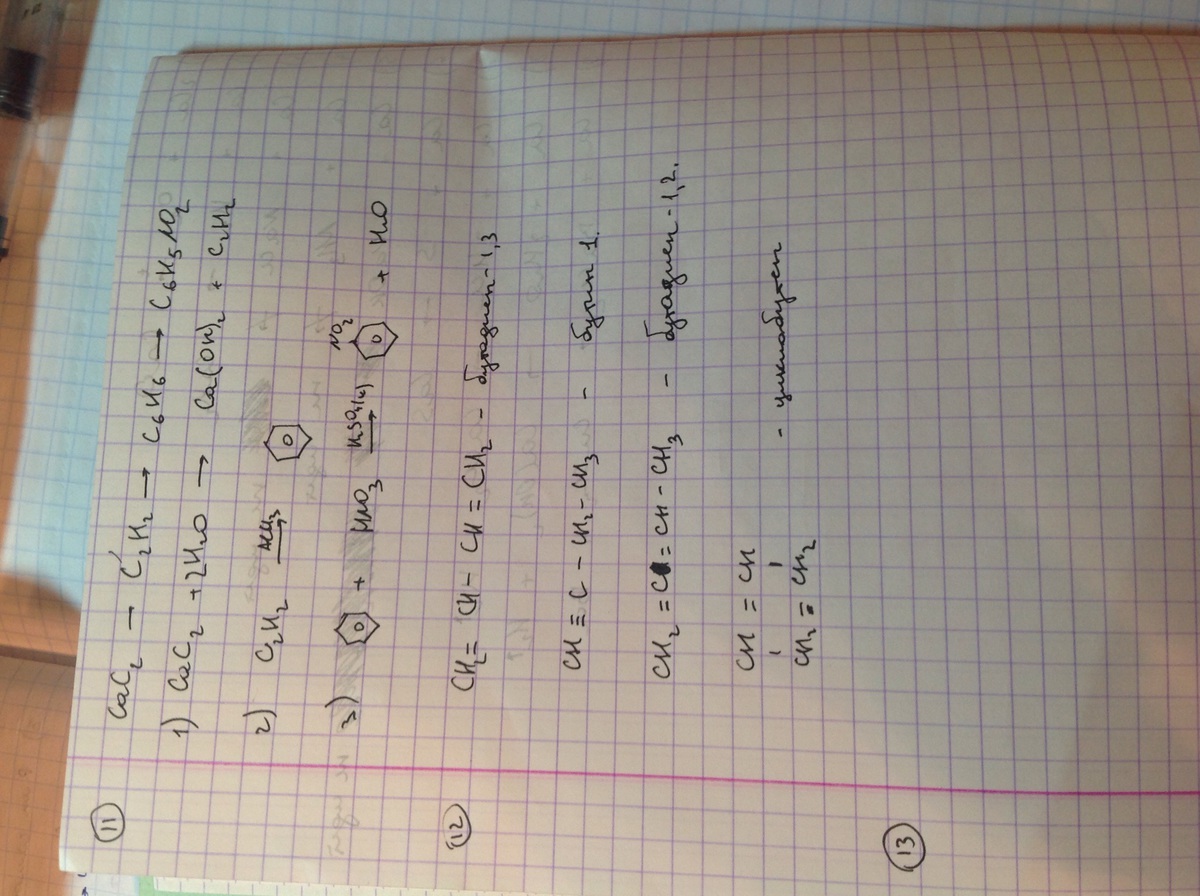 11
CaC2 → C2H2 → C6H6 → C6H5NO2
1) CaC2 + 2H2O → Ca(OH)2 + C2H2
2) C2H2 AlCl3 →
3) + HNO3 H2SO4(к) → NO2 + H2O
12
CH2 = CH - CH = CH2 - бутадиен-1,3
CH ≡ C - CH2 - CH3 - бутин 1.
CH2 = C = CH - CH3 - бутадиен-1,2.
CH = CH
CH2 = CH2 - циклобутен
13